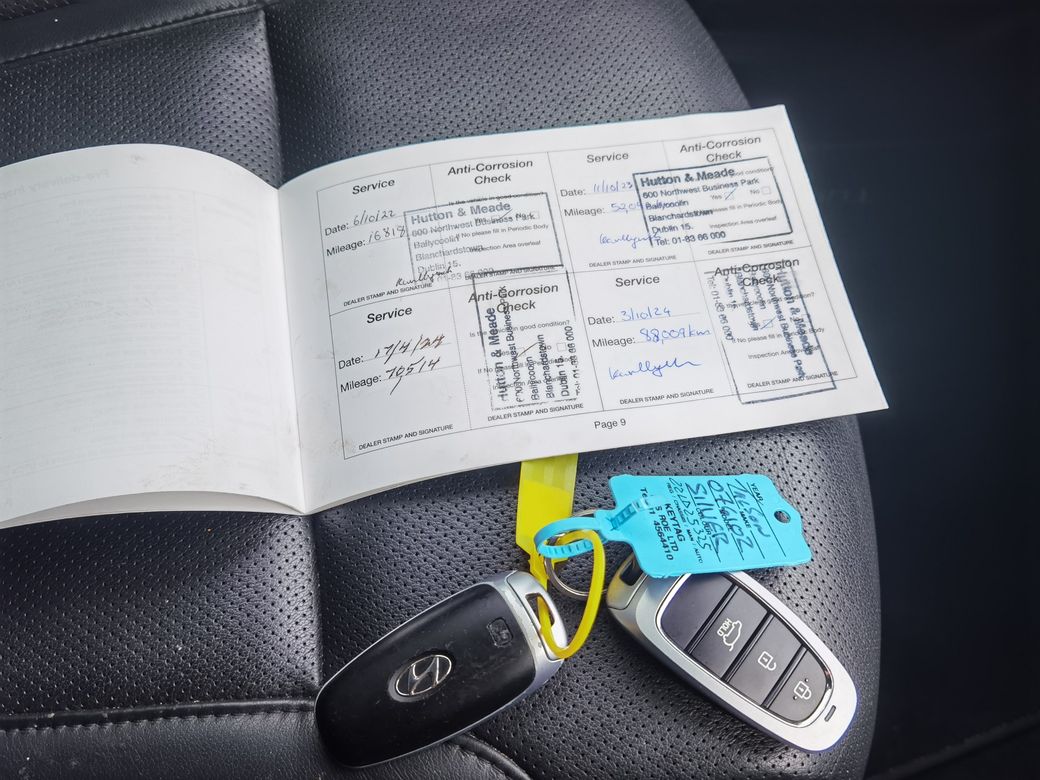 Service
Anti-Corrosion
Check
Date: 6/10/22
Mileage: 16818
Is the vehicle in good condition?
Yes No
If No please fill in Periodic Body
Inspection Area overleaf
Hutton & Meade
600 Northwest Business Park
Ballycoolin
Blanchardstown
Dublin 15.
Tel: 01-83 66 000
DEALER STAMP AND SIGNATURE
Service
Anti-Corrosion
Check
Date: 11/10/23
Mileage:
good condition?
Yes No
please fill in Periodic Body
Inspection Area overleaf
Hutton & Meade
600 Northwest Business Park
Ballycoolin
Blanchardstown
Dublin 15.
Tel: 01-83 66 000
DEALER STAMP AND SIGNATURE
Service
Anti-Corrosion
Check
Date: 17/4/24
Mileage: 70514
Is the vehicle in good condition?
No
If No please fill in Periodic Body
Inspection Area overleaf
Hutton & Meade
600 Northwest Business Park
Ballycoolin
Blanchardstown
Dublin 15.
Tel: 01-83 66 000
DEALER STAMP AND SIGNATURE
DEALER STAMP AND SIGNATURE
Service
Anti-Corrosion
Check
Date: 3/10/24
Mileage: 88,009km
vehicle in good condition?
No
If No please fill in Periodic Body
Inspection Area overleaf
Hutton & Meade
600 Northwest Business Park
Blanchardstown
Dublin 15.
Tel: 01-83 66 000
DEALER STAMP AND SIGNATURE
Page 9
YEAR
MAKE
SILVER
KEYTAG
S ROE LTD
4564410
HOLD